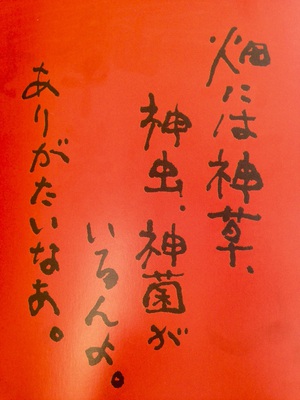 畑には神草、
神虫、神菌が
いるんよ。
ありがたいなあ。